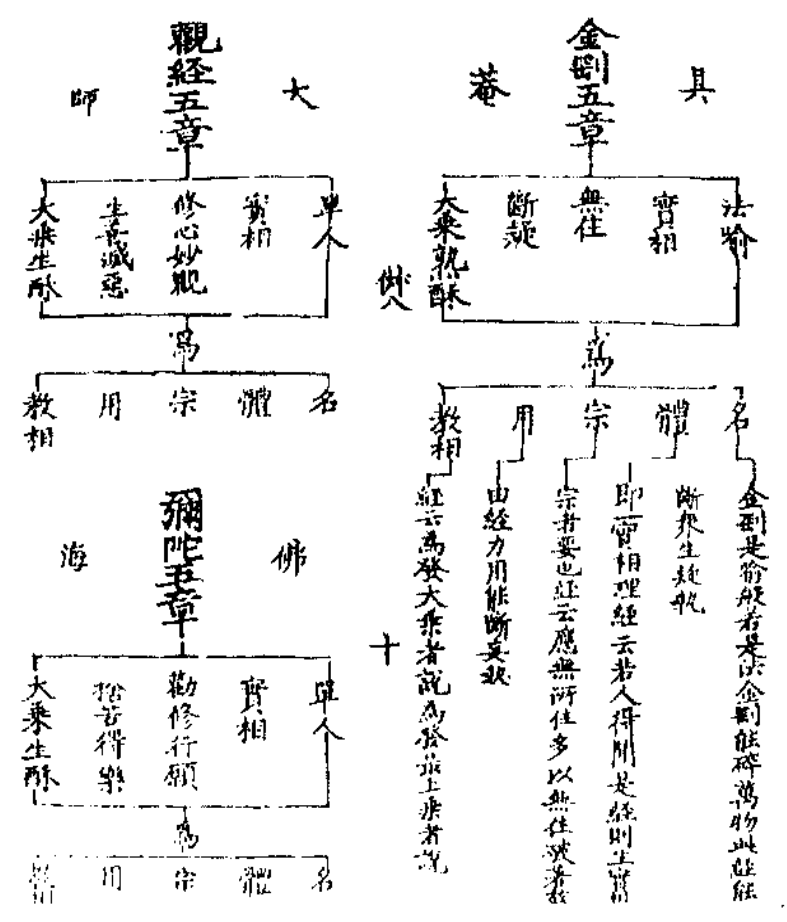 具
菴
金剛五章
法喻
實相
無住
斷疑
大乘熟酥
為
名
體
宗
用
教相
金剛是喻般若是法金剛能碎萬物此経能
斷衆生疑執
即實相理経云若人得聞是経則生實相
宗者要也経云應無所住多以無住破著
由経力用能斷妄
経云為發大乘者說為發最上乘者說
十
大
師
觀経五章
單人
實相
修心妙觀
生善滅惡
大乘生酥
為
名
體
宗
用
教相
佛
海
彌陀五章
單人
實相
勸修行願
捨苦得樂
大乘生酥
為
名
體
宗
用